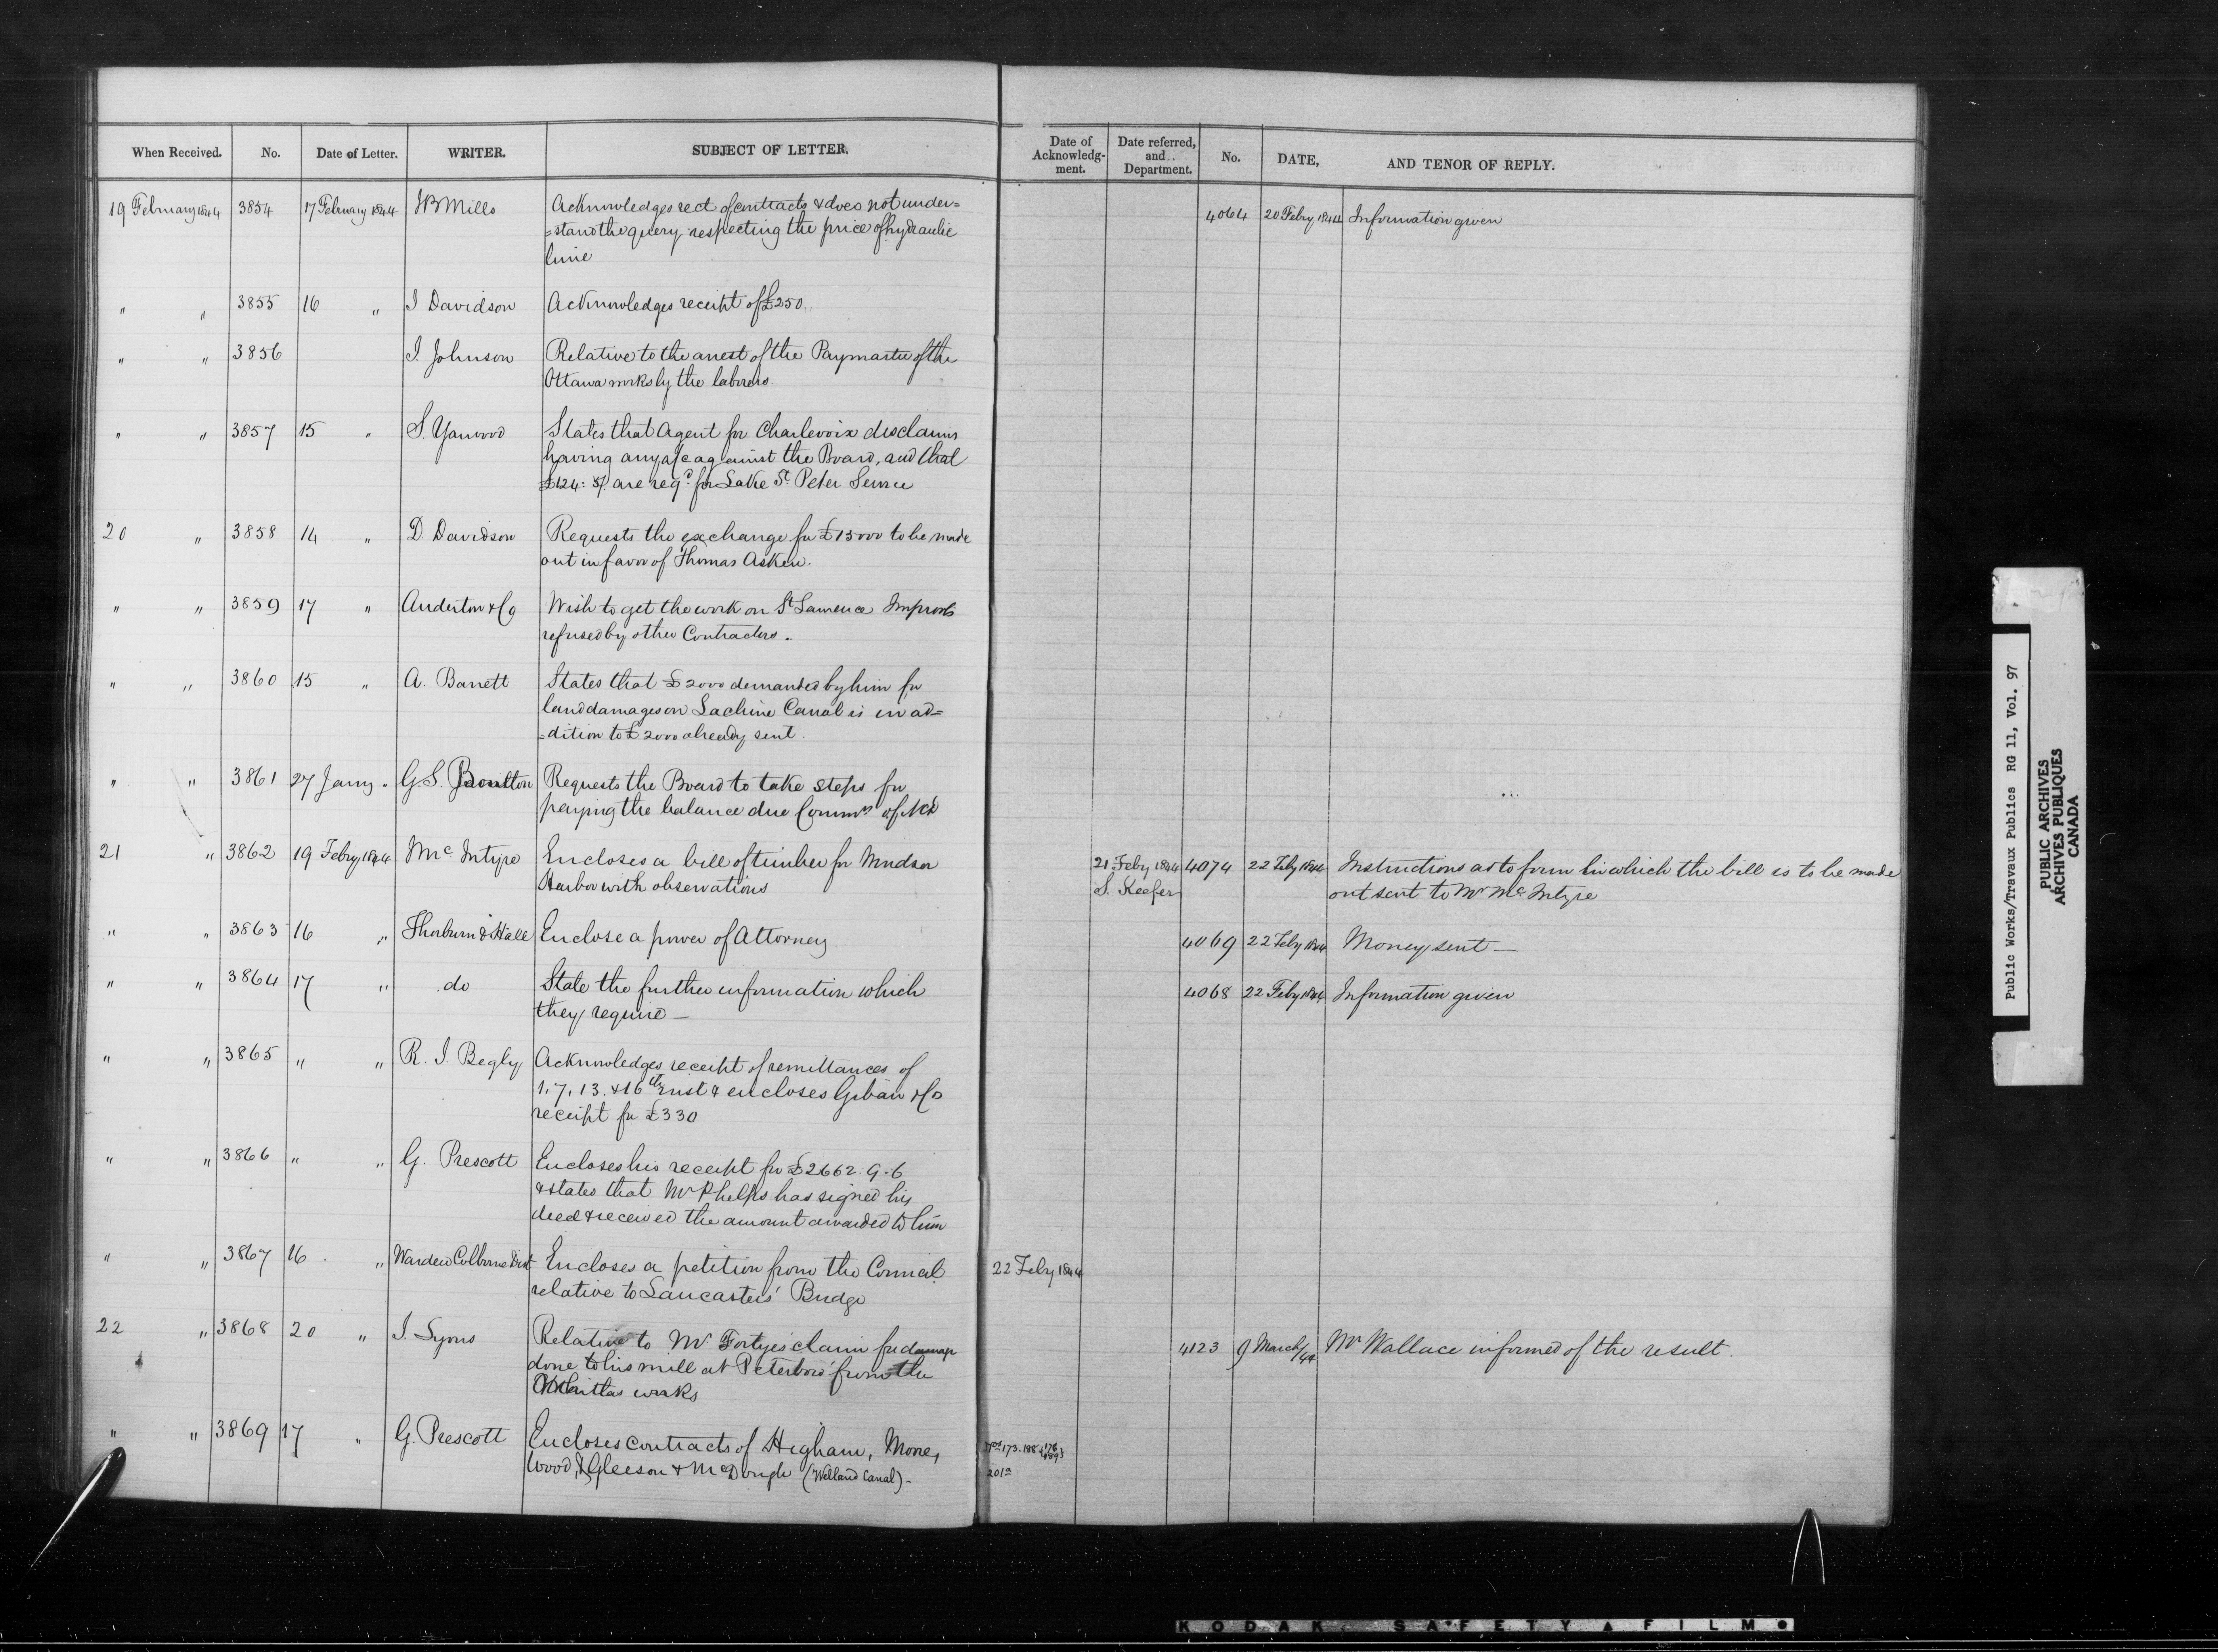 When Received. No. Date of Letter. WRITER. SUBJECT OF LETTER. Date of Acknowledg-ment. Date referred, and Department. No. DATE, AND TENOR OF REPLY.
19 February 1844 3854 17 February 1844 J B Mills Acknowledges rect of contracts & does not under= 4064 20 Feby 1844 Information given
=stand the query respecting the price of hydraulic
lime
" " 3855 16 " J Davidson Acknowledges receipt of £250.
" " 3856 J. Johnson Relative to the arrest of the Paymaster of the
Ottawa works by the laborers.
" " 3857 15 " S. Yarwood States that Agent for Charlevoix disclaims
having any a/c against the Board, and that
£124: 5/. are reqd for Lake St Peter Service
20 " 3858 14 " D. Davidson Requests the exchange for £15000 to be made
out in favor of Thomas Askew.
" " 3859 17 " Anderton & Co Wish to get the work on St Lawrence Improvts
refused by other Contractors.
" " 3860 15 " A. Barrett States that £2000 demanded by him for
land damages on Lachine Canal is in ad=
=dition to £2000 already sent.
" " 3861 27 Jany " G.S. Boulton Requests the Board to take steps for
paying the balance due Commrs of
21 " 3862 19 Feby 1844 J Mc Intyre Encloses a bill of timber for Windsor 21 Feby 1844 4074 22 Feby 1844 Instructions as to form in which the bill is to be made
Harbor with observations S. Keefer out sent to Mr McIntyre
" " 3863 16 " Thorburn & Hall Enclose a power of Attorney 4069 22 Feby 1844 Money sent —
" " 3864 17 " do State the further information which 4068 22 Feby 1844 Information given
they require —
" " 3865 " " R. J. Begly Acknowledges receipt of remittances of
1, 7, 13. & 16th inst & encloses & Co
receipt for £330
" " 3866 " " G. Prescott Encloses his receipt for £2662. 9. 6
& states that Mr Phelps has signed his
deed & received the amount awarded to him
" " 3867 16 " Warden Colborne Dist Encloses a petition from the Council 22 Feby 1844
relative to Lancasters' Bridge
22 " 3868 20 " J. Lyons Relative to Mr Fortye's claim for damage 4123 9 March/44 Mr Wallace informed of the result.
done to his mill at Peterboro' from the
works
" " 3869 17 " G. Prescott Encloses contracts of Higham, More, Nos 173. 188
Wood, Gleeson & McDonagh (Welland Canal) — 201a
Public Works/Travaux Publics RG 11, Vol. 97
PUBLIC ARCHIVES
ARCHIVES PUBLIQUES
CANADA
KODAK SAFETY FILM